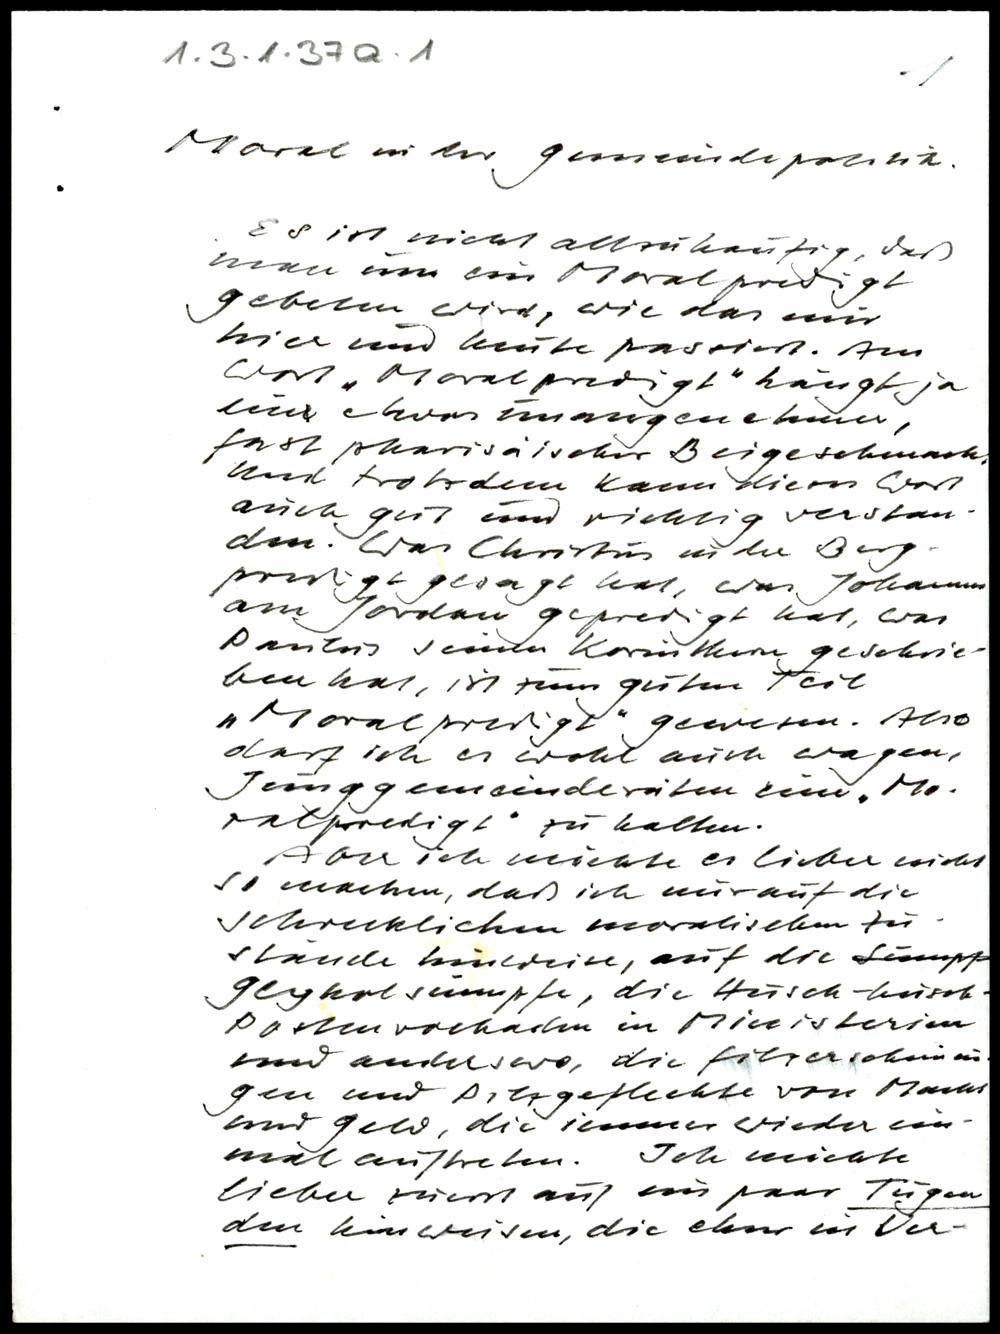 1.3.1.37a.1
1
Moral in der Gemeindepolitik.
Es ist nicht allzuhäufig, daß
man um ein Moralpredigt
gebeten wird, wie das mir
hier und heute passiert. Am
Wort „Moralpredigt" hängt ja
ein etwas unangenehmer,
fast pharisäischer Beigeschmack.
Und trotzdem kann dieses Wort
auch gut und richtig verstan-
den. Was Christus in der Berg-
predigt gesagt hat, was Johannes
am Jordan gepredigt hat, was
Paulus seinen Korinthern geschrie-
ben hat, ist zum guten Teil
„Moralpredigt" gewesen. Also
darf ich es wohl auch wagen,
Junggemeinderäten eine „Mo-
ralpredigt" zu halten.
Aber ich möchte es lieber nicht
so machen, daß ich nur auf die
schrecklichen moralischen Zu-
stände hinweise, auf die Sümpf
Glykolsümpfe, die Husch-husch-
Postenschachern in Ministerien
und anderswo, die Filzerscheinun-
gen und Pilzgeflechte von Macht
und Geld, die immer wieder ein-
mal auftreten. Ich möchte
lieber zuerst auf ein paar Tugen
den hinweisen, die eher in Ver-